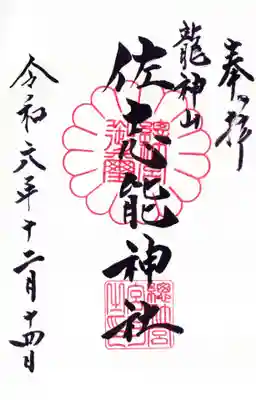 奉拝
龍神山
佐志能神社
令和六年十二月十四日